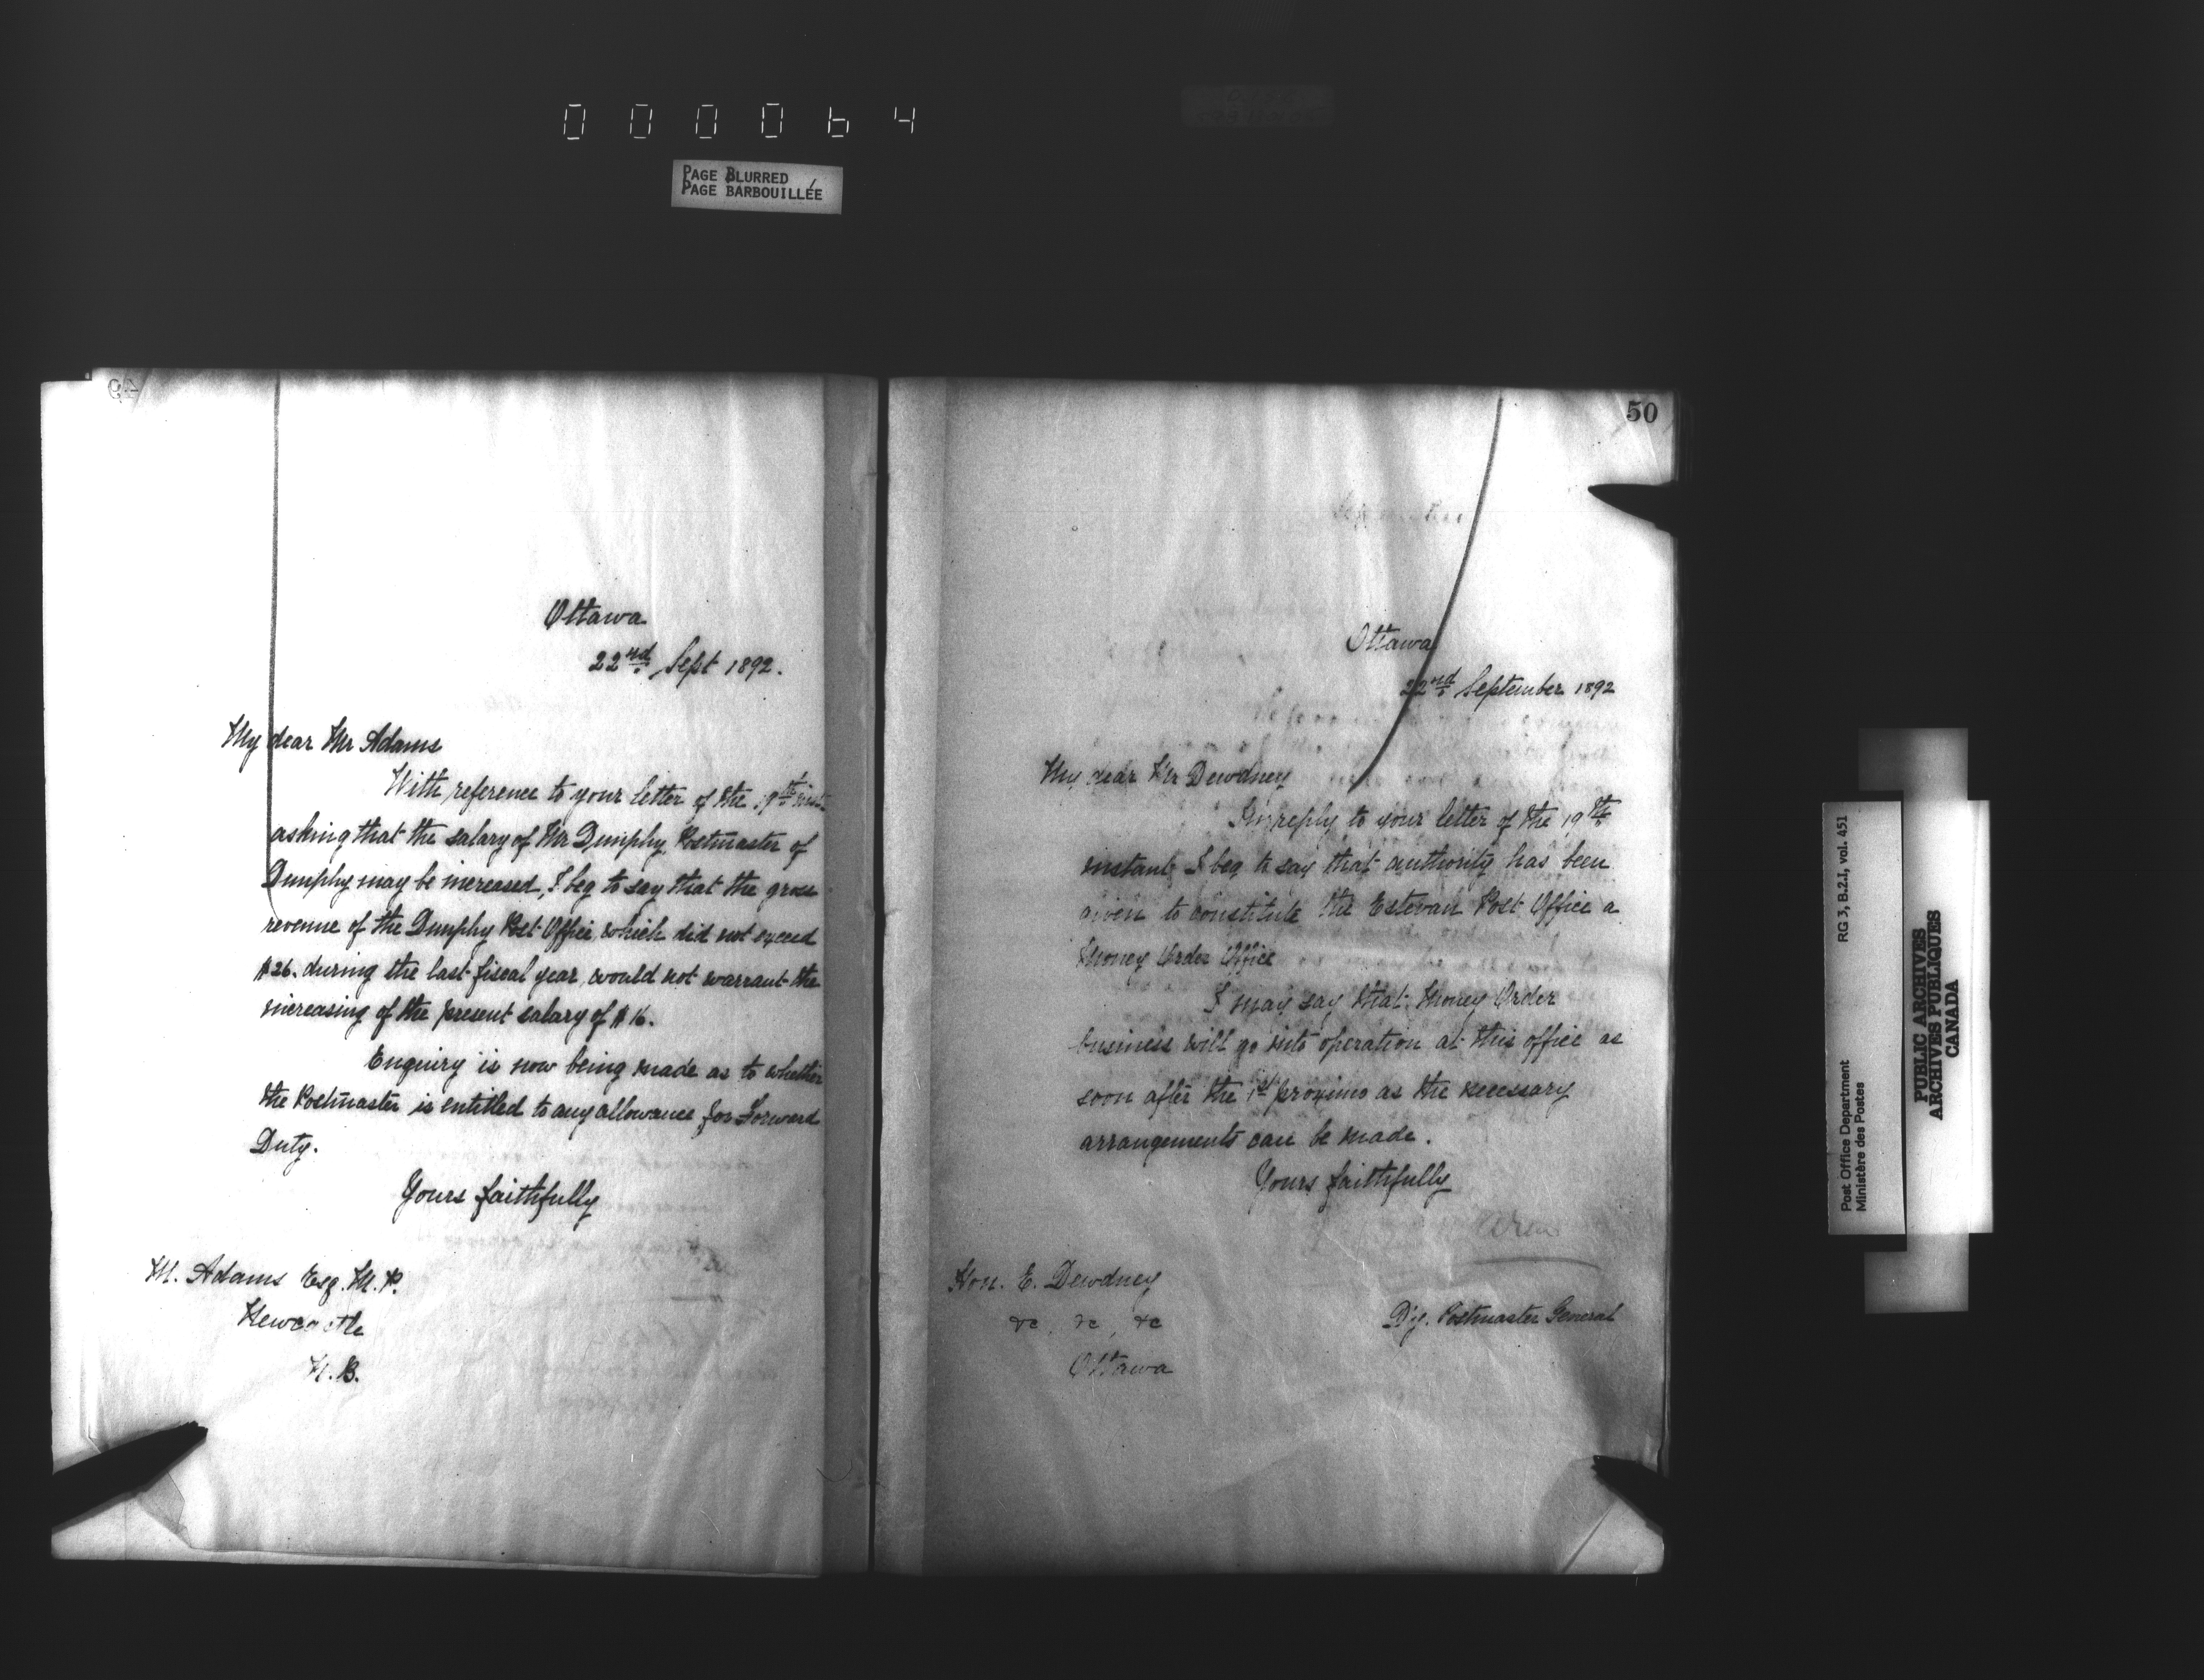 000064
PAGE BLURRED
PAGE BARBOUILLÉE
49
Ottawa
22nd Sept 1892.
My dear Mr Adams
With reference to your letter of the 19th inst
asking that the salary of Mr Dunphy, Postmaster of
Dunphy may be increased, I beg to say that the gross
revenue of the Dunphy Post Office, which did not exceed
$26. during the last fiscal year, would not warrant the
increasing of the present salary of $16.
Enquiry is now being made as to whether
the Postmaster is entitled to any allowance for Forward
Duty.
Yours faithfully
M. Adams Esq. M.P.
Newcastle
N.B.
50
Ottawa
22nd September 1892
My dear Mr Dewdney
In reply to your letter of the 19th
instant, I beg to say that authority has been
given to constitute the Estevan Post Office a
Money Order Office
I may say that Money Order
business will go into operation at this office as
soon after the 1st proximo as the necessary
arrangements can be made.
Yours faithfully
Hon. E. Dewdney
&c, &c, &c
Ottawa
Dy. Postmaster General
Post Office Department
Ministère des Postes
RG 3, B.2.I, vol. 451
PUBLIC ARCHIVES
ARCHIVES PUBLIQUES
CANADA